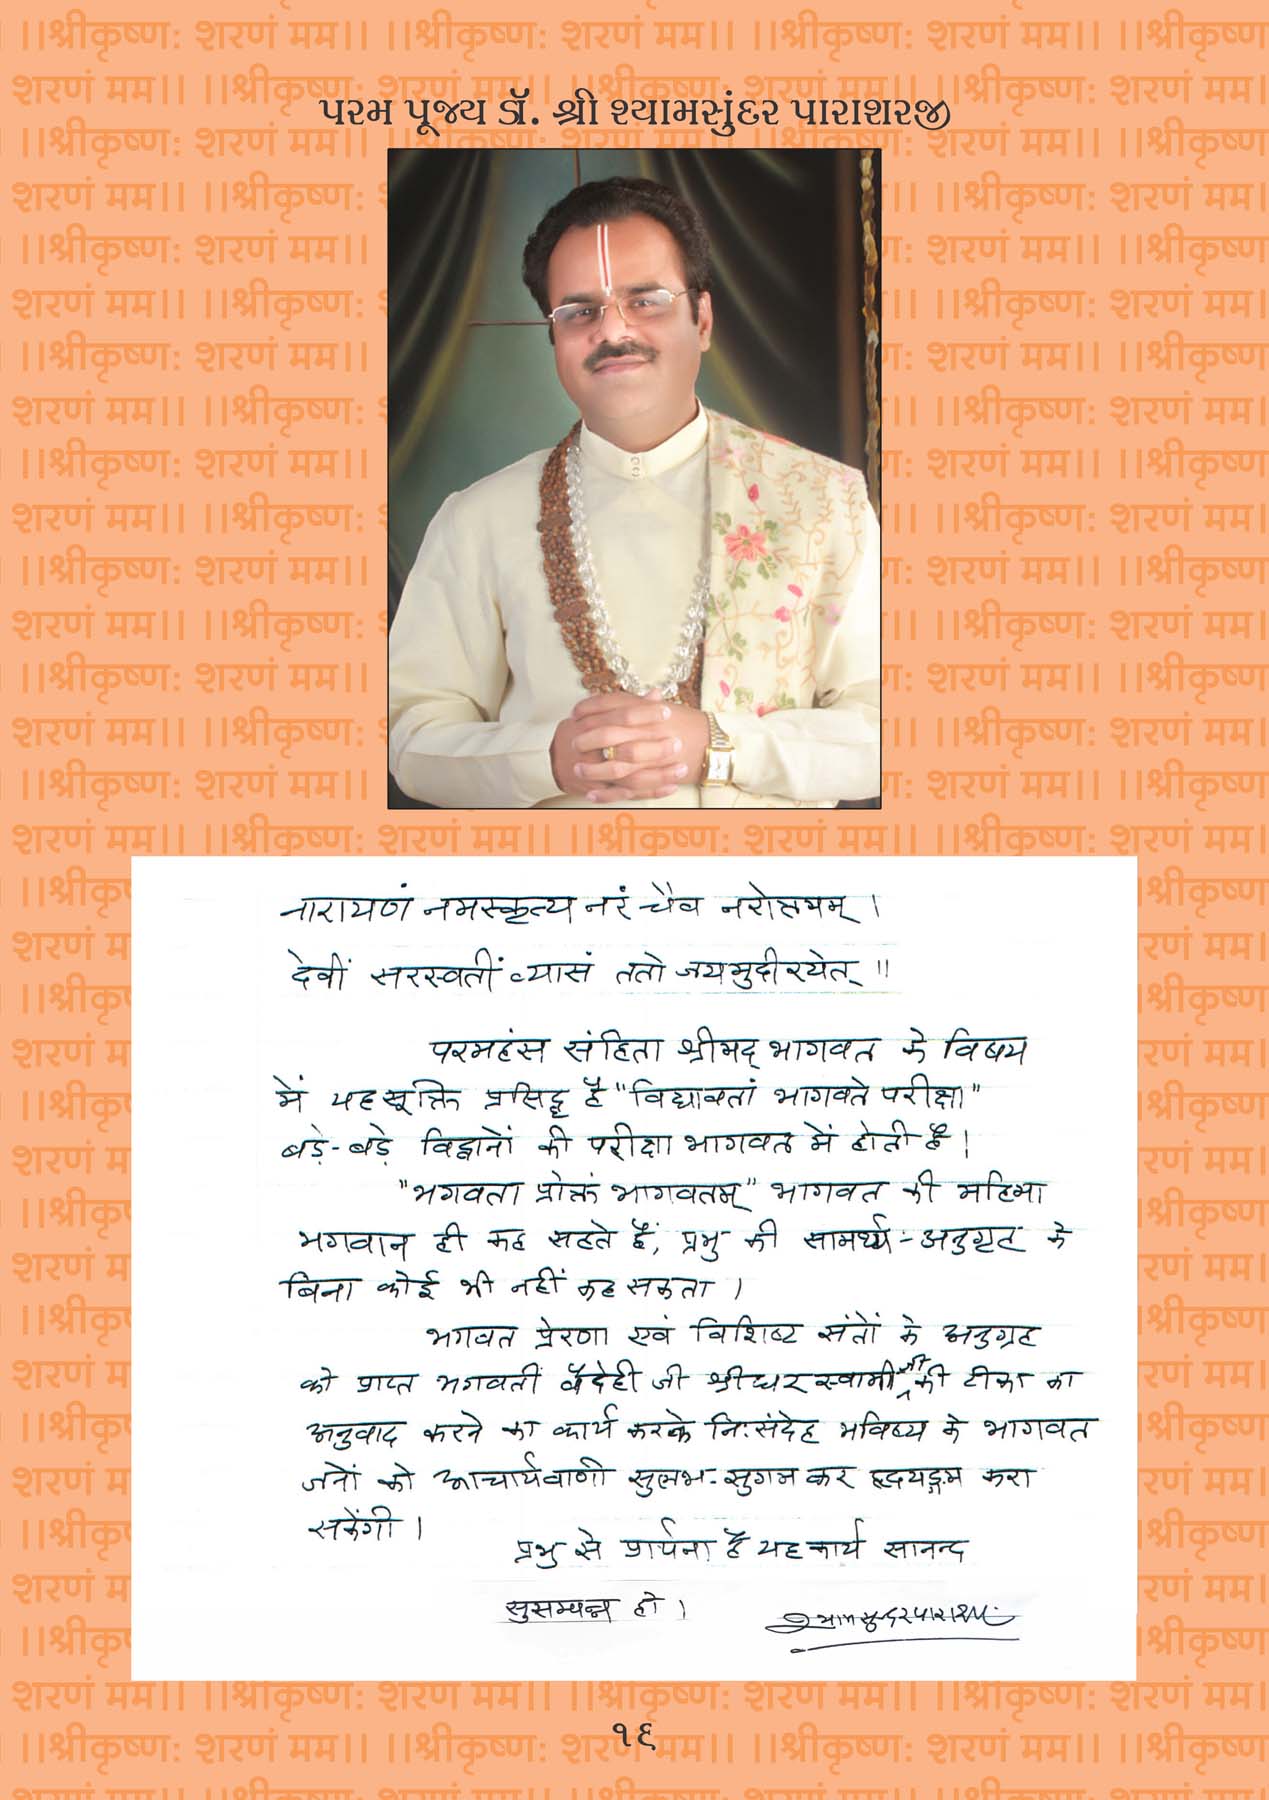 પરમ પૂજ્ય ડૉ. શ્રી શ્યામસુંદર પારાશરજી
नारायणं नमस्कृत्य नरं चैव नरोत्तमम् ।
देवीं सरस्वतीं व्यासं ततो जयमुदीरयेत् ॥
परमहंस संहिता श्रीमद् भागवत के विषय
में यह सूक्ति प्रसिद्ध है "विद्यावतां भागवते परीक्षा"
बड़े-बड़े विद्वानों की परीक्षा भागवत में होती है ।
"भगवता प्रोक्तं भागवतम्" भागवत की महिमा
भगवान ही कह सकते हैं, प्रभु की सामर्थ्य-अनुग्रह के
बिना कोई भी नहीं कह सकता ।
भगवत प्रेरणा एवं विशिष्ट संतों के अनुग्रह
को प्राप्त भगवतीं वैदेही जी श्रीधर स्वामी जी की टीका का
अनुवाद करने का कार्य करके नि:संदेह भविष्य के भागवत
जनों को आचार्यवाणी सुलभ-सुगम कर हृदयङ्गम करा
सकेंगी ।
प्रभु से प्रार्थना है यह कार्य सानन्द
सुसम्पन्न हो ।
श्यामसुन्दर पाराशर
૧૬